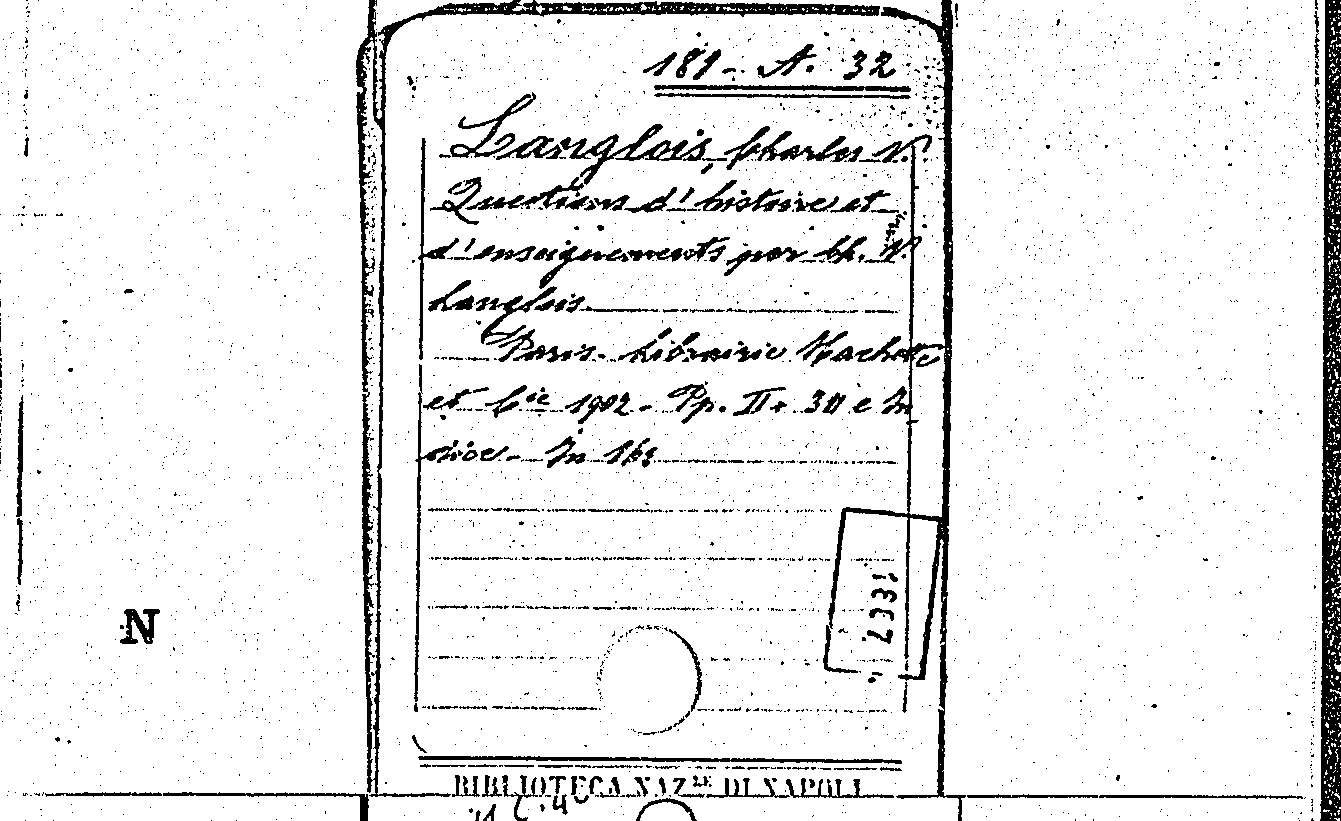 181 - A. 32
Langlois, Charles V.
Questions d'histoire et
d'enseignements par Ch. V.
Langlois.
Paris. Librairie Hachette
et Cie 1902 - Pp. II +
In
dice - In 16º
N
BIBLIOTECA NAZLE DI NAPOLI